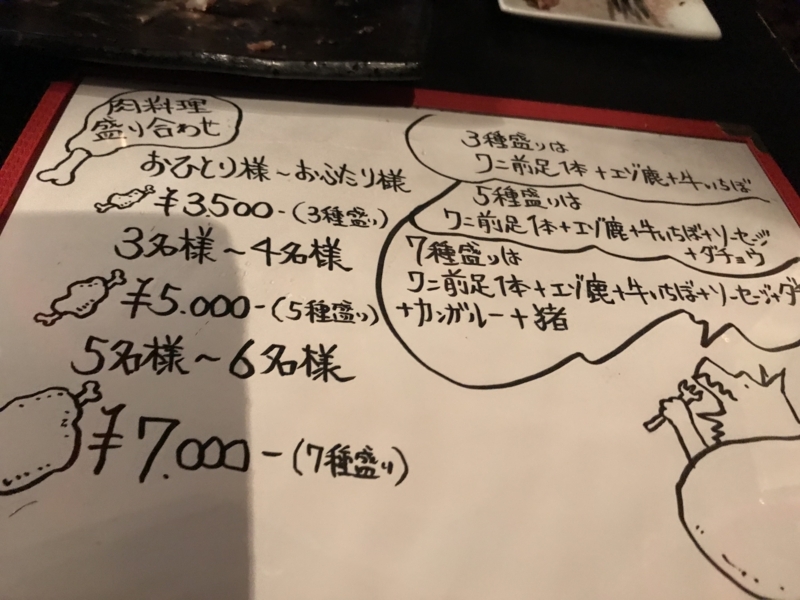 肉料理
盛り合わせ
おひとり様~おふたり様
¥3.500-(3種盛り)
3名様~4名様
¥5.000-(5種盛り)
5名様~6名様
¥7.000-(7種盛り)
3種盛りは
ワニ前足1本+エゾ鹿+牛いちぼ
5種盛りは
ワニ前足1本+エゾ鹿+牛いちぼ+ソーセージ
+ダチョウ
7種盛りは
ワニ前足1本+エゾ鹿+牛いちぼ+ソーセージ+ダ
+カンガルー+猪